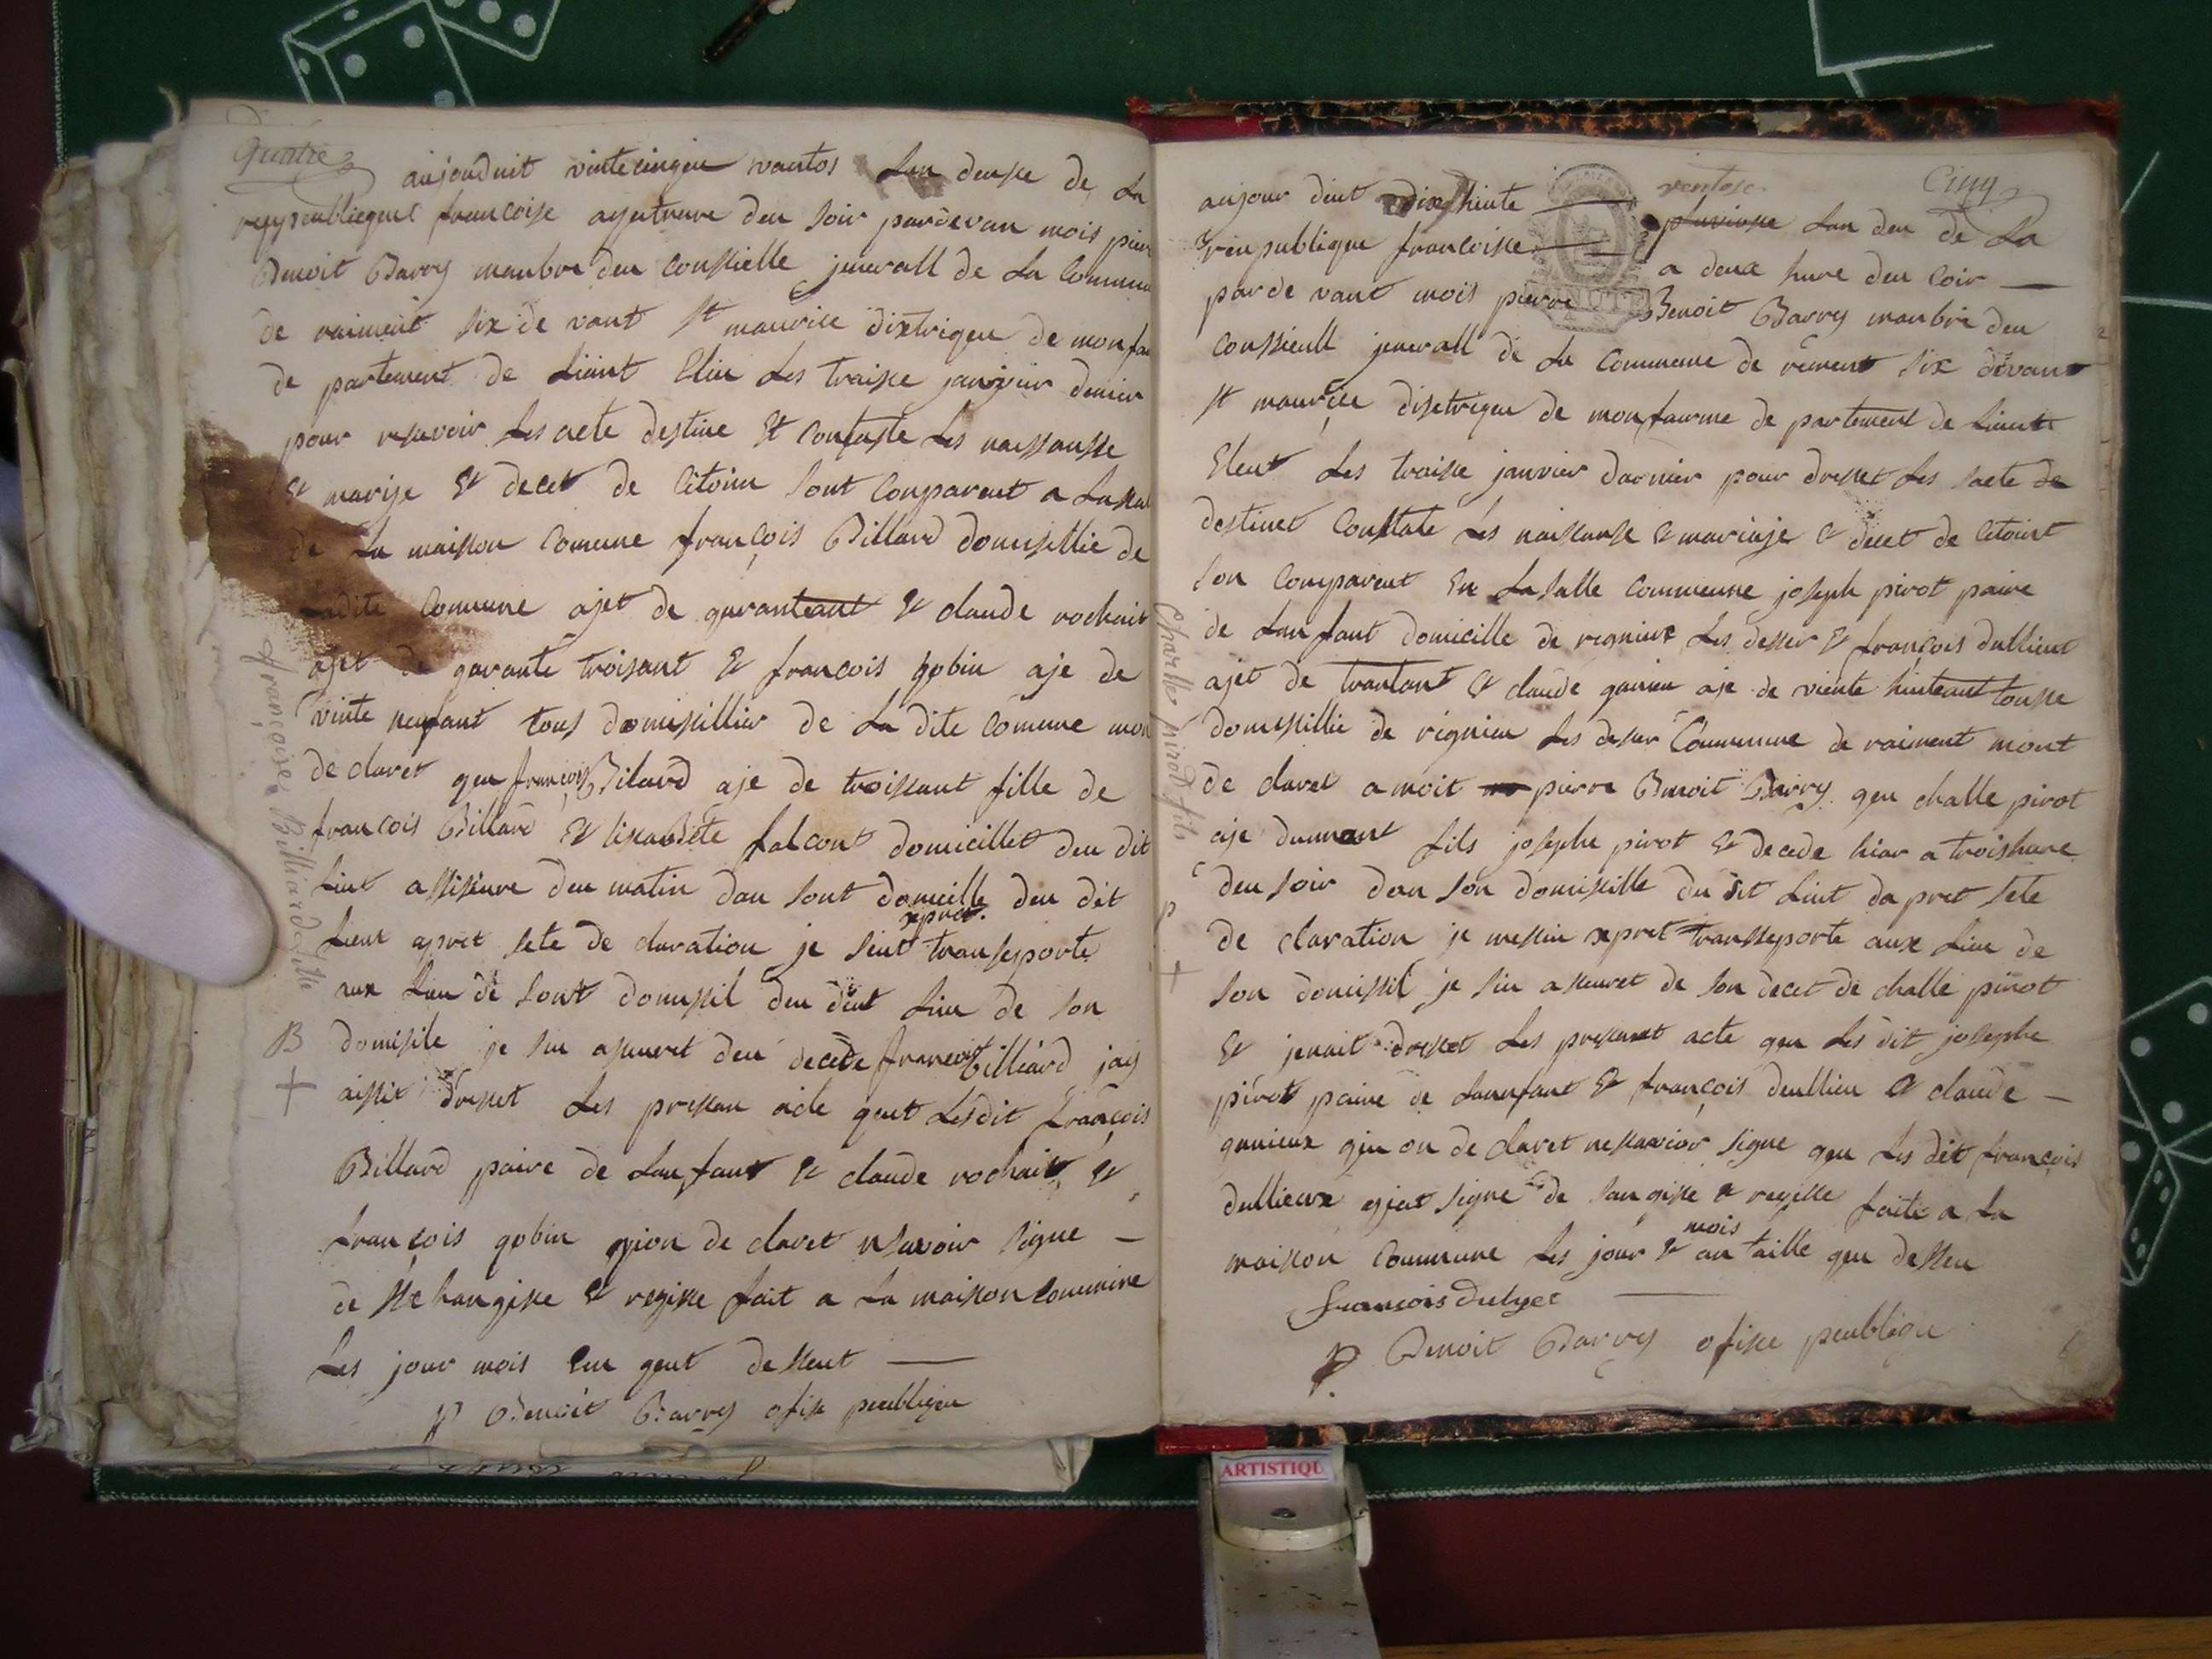 Quatre
aujouduit vintecinqeu vantos Lan deuxe de La
reppeubliequeu francoise ajeutreure deu soir pardevan mois pierr
Benoit Barry manbre deu conssielle jenerall de La Commun
de raiment six de vant St maurice dixtriqeu de monfau
de partement de Liint Eliu Les traisse janvier denier
pour resavoir Les acte destine Et contaste Les naissansse
Et marije Et decet de Citoinu sont Comparent a Lasal
de La maison Comune françois Billard domissillie de
Ladite Comune ajet de garanteant Et claude rochait
ajet de garante troisant Et francois gobin aje de
vinte neufant tous domissillier de La dite Comune mon
de claret qeu françois Bilard aje de troissant fille de
francois Billard Et lisaBete falcont domicillet deu dit
Liut assisieure deu matin dan sont domicille deu dit
Lieut apret sete de claration je sieut xpret transeporte
aux Lieu de sont domissil deu dit Lieu de son
domisile je sui aseuret deu decede francois Billiard jay
aissix dresset Les pressan acte qeut Lesdit françois
Billard paire de Lanfant Et claude rochait Et
françois gobin qion de claret nsavoir signe –
de sse hangisse Et regisse fait a La maison Comuine
Les jour mois Em qeut desseut —
P Benoit Barry ofisse peubliqeu
françoise Billiard fille
B
+
Cinq
ventose
aujour duit dixhuite — pluviosse Lan deu de La
reupublique françoisse — a deux hure deu soir —
parde vant mois pierre Benoit Barry manbre deu
MINUTE
conssieull jenerall de La Commeune de rement six devant
St maurice dixtriqeu de monfaurme de partement de Liinte
Eleut Les traisse janvier darnier pour dresset Les sacte de
destinet Constate Les naissansse Et mariaje Et decet de Citoint
son Comparent En La salle Commeune joseph pirot paire
de Lanfant domicille de regnieux Les desser Et françois dullieut
ajet de trantant Et claude ganieu aje de viente huiteant tousse
domissillie de regnieu Les dessur Commune de raiment mont
de claret amoit pierre Benoit Barry qeu challe pirot
aje dunnant fils josephe pirot Et decede hiar a troishure
deu soir dan son domissille du dit Liut dapret sete
de claration je messiu xpret transseporte aux Lieu de
son domissil je siu asseuret de son decet de challe pirot
Et jenait dresset Les pressant acte qeu Les dit josephe
pirot paire de Lanfant Et françois deullieu Et claude –
ganieux qiu on de claret nessavoir signe qeu Les dit françois
dullieux qiat signe de san gisse Et regisse faite a La
maison Commune Les jour Et mois an taille qeu desseu
francois dulyet —
P Benoit Barry ofisse peubliqeu
Charlle pirod fils
P
+
ARTISTIQU